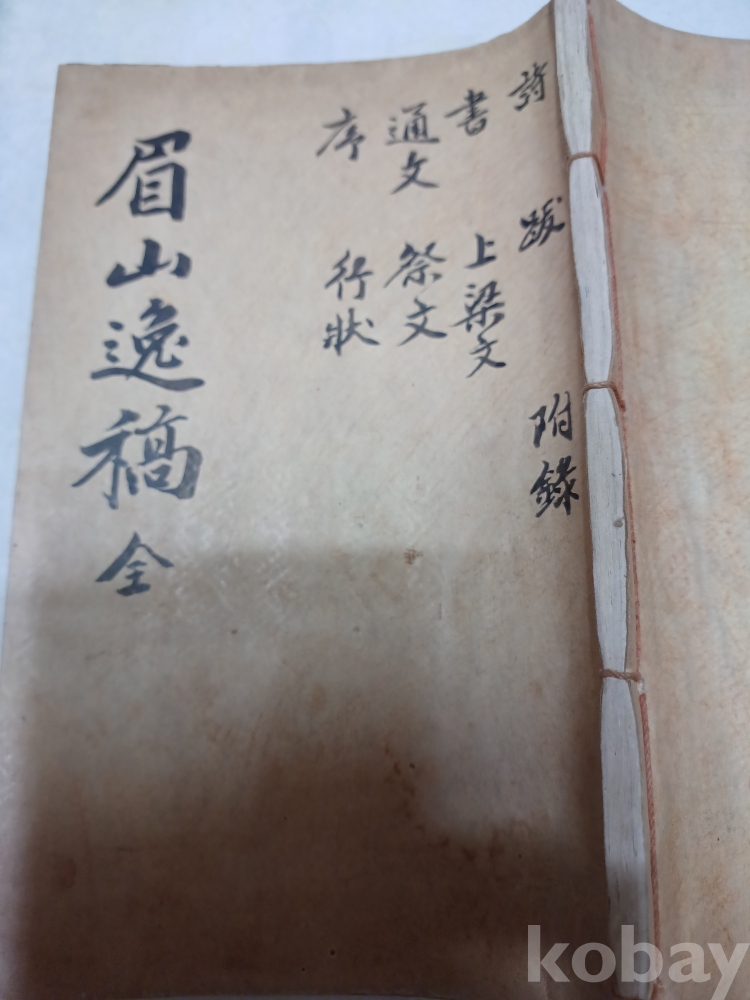 眉山逸稿 全
詩 跋 附錄
書 上梁文
通文 祭文
序 行狀
kobay